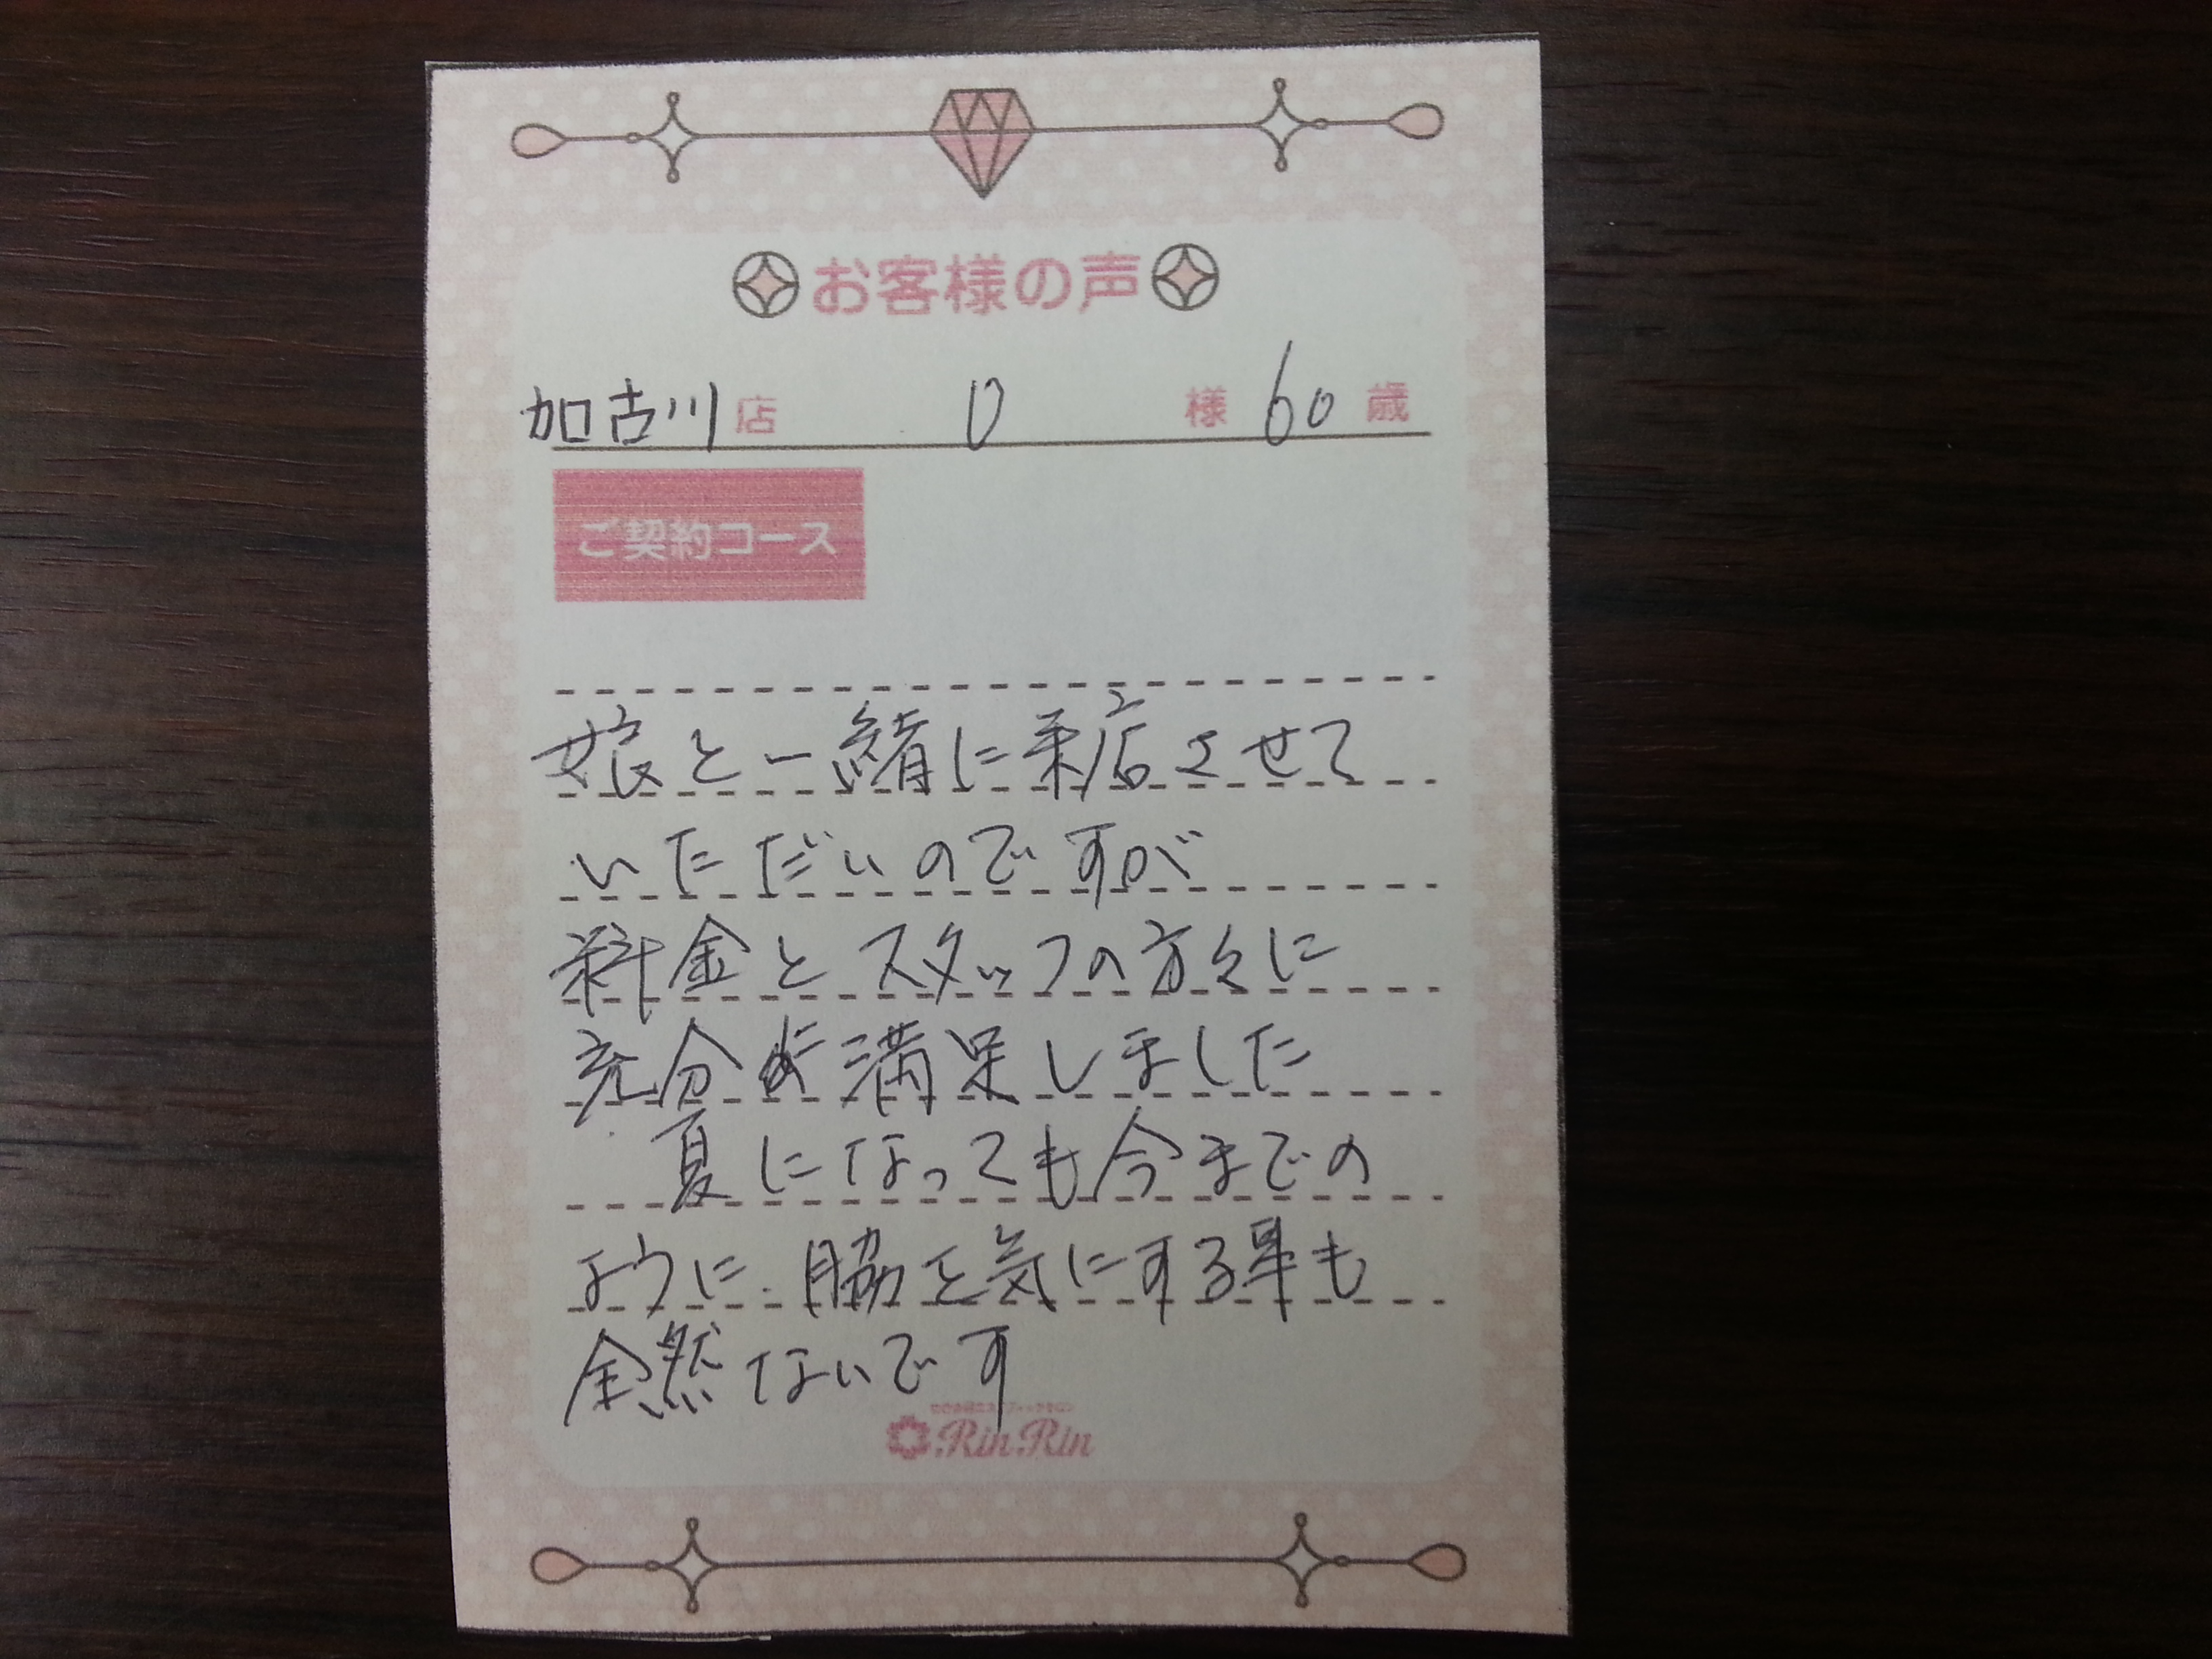 お客様の声
加古川店 O 様 60歳
ご契約コース
娘と一緒に来店させて
いただいのですが
料金とスタッフの方々に
充分に満足しました
夏になっても今までの
ように、脇を気にする事も
全然ないです
RinRin